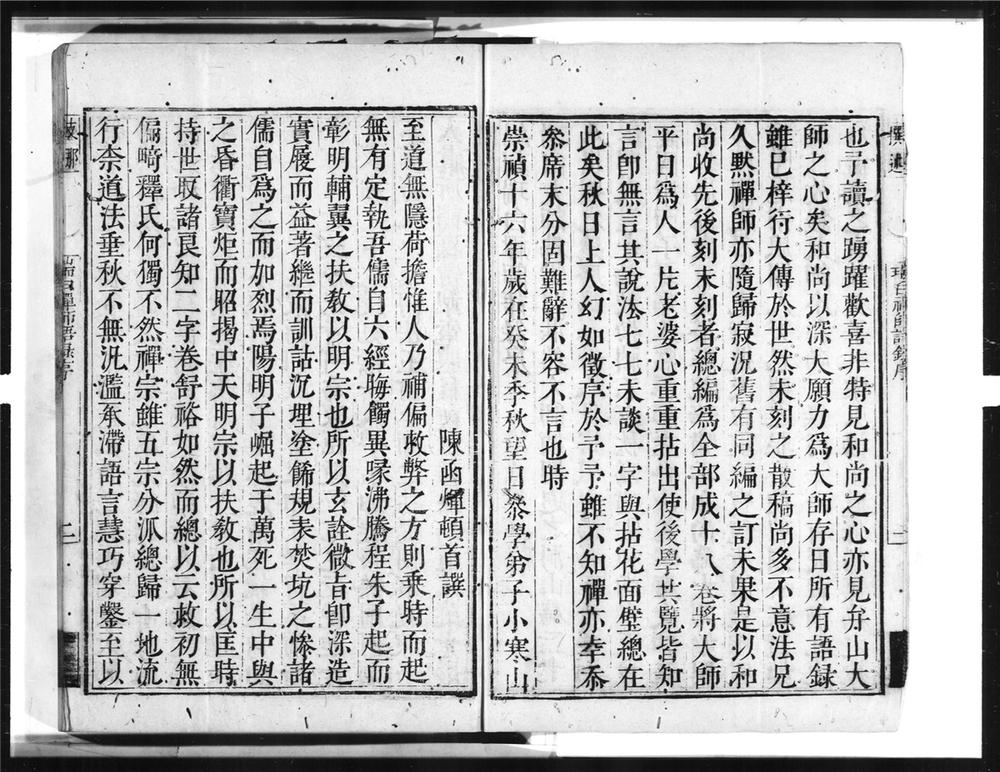 也予讀之踴躍歡喜非特見和尚之心亦見弁山大
師之心矣和尚以深大願力為大師存日所有語錄
雖已梓行大傳於世然未刻之散稿尚多不意法兄
久默禪師亦隨歸寂況舊有同編之訂未果是以和
尚收先後刻未刻者總編爲全部成十八卷將大師
平日爲人一片老婆心重重拈出使後學共覽皆知
言卽無言其說法七七未談一字與拈花面壁總在
此矣秋日上人幻如徵序於予予雖不知禪亦幸忝
叅席末分固難辭不容不言也時
崇禎十六年歲在癸未季秋望日叅學弟子小寒山
陳函煇頓首譔
至道無隱荷擔惟人乃補偏救弊之方則乗時而起
無有定執吾儒自六經晦蠋異喙沸騰程朱子起而
彰明輔翼之扶敎以明宗也所以玄詮微旨卽深造
實履而益著繼而訓詁沉埋塗餙規表焚坑之慘諸
儒自爲之而加烈焉陽明子崛起于萬死一生中與
之昏衢寶炬而昭揭中天明宗以扶敎也所以匡時
持世取諸良知二字卷舒裕如然而總以云救初無
偏畸釋氏何獨不然禪宗雖五宗分派總歸一地流
行柰道法垂秋不無汎濫承滯語言慧巧穿鑿至以
撰述
瑞白禪師語錄序
二
瑞白禪師語錄序
二